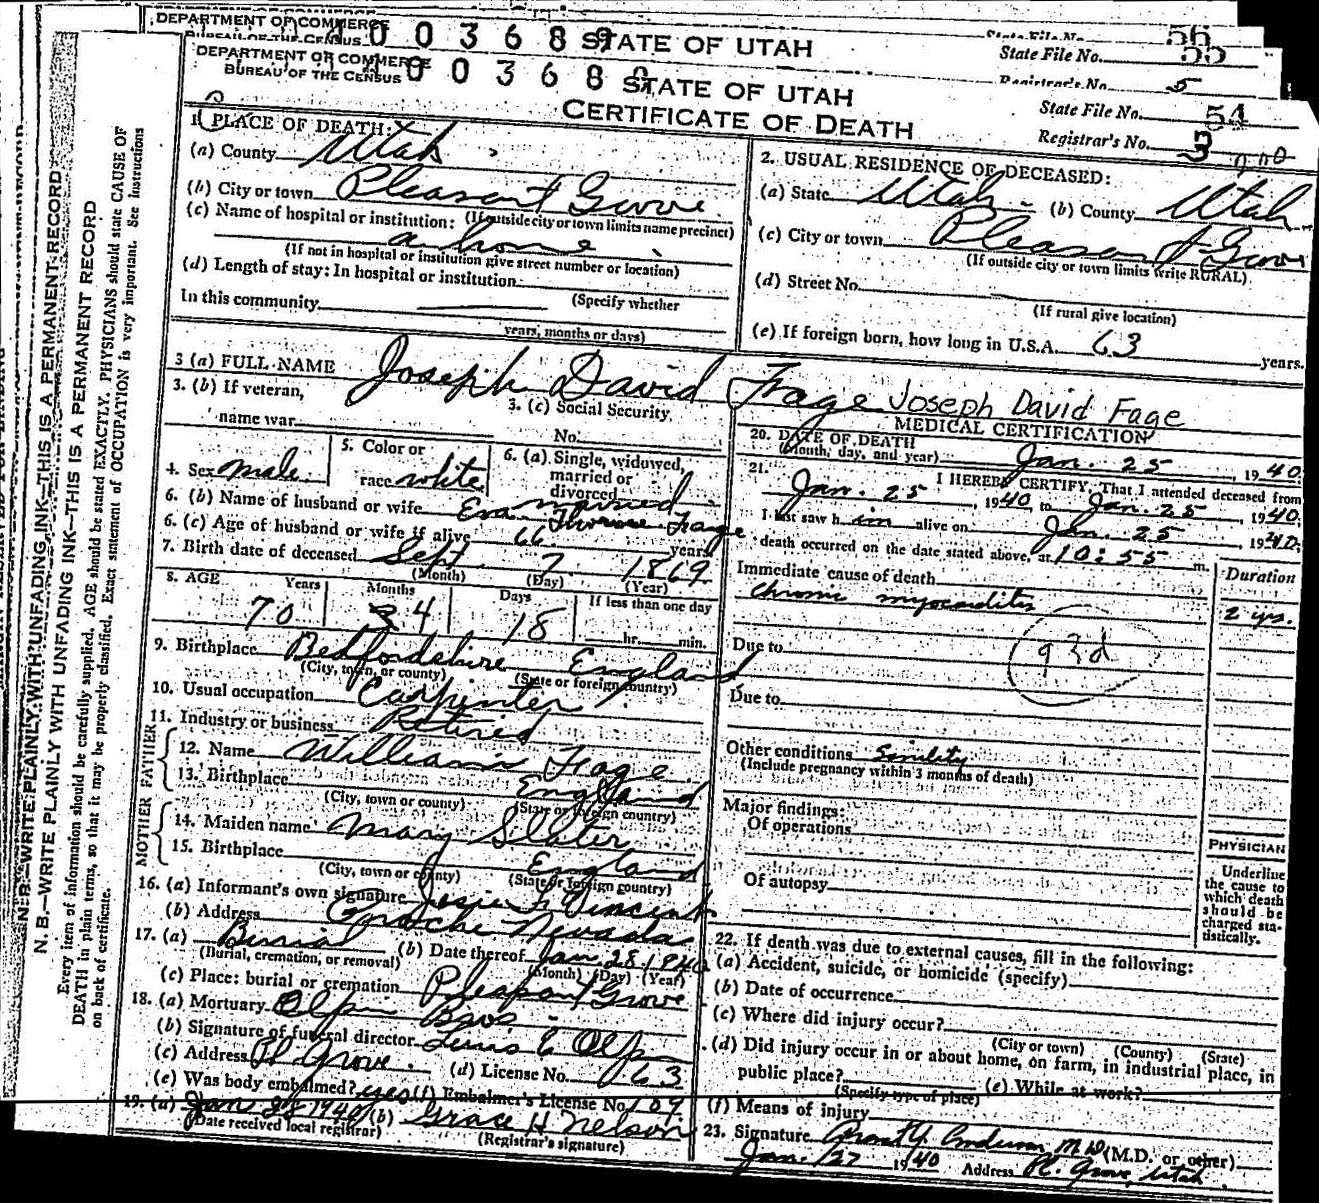 DEPARTMENT OF COMMERCE
BUREAU OF THE CENSUS
STATE OF UTAH
State File No. 56
State File No. 55
Registrar's No. 5
DEPARTMENT OF COMMERCE
BUREAU OF THE CENSUS
STATE OF UTAH
CERTIFICATE OF DEATH
State File No. 54
Registrar's No. 3
N. B.—WRITE PLAINLY WITH UNFADING INK—THIS IS A PERMANENT RECORD
N. B.—WRITE PLAINLY WITH UNFADING INK—THIS IS A PERMANENT RECORD
Every item of information should be carefully supplied. AGE should be stated EXACTLY. PHYSICIANS should state CAUSE OF
DEATH in plain terms, so that it may be properly classified. Exact statement of OCCUPATION is very important. See instructions
on back of certificate.
1. PLACE OF DEATH:
(a) County Utah
(b) City or town Pleasant Grove
(If outside city or town limits name precinct)
(c) Name of hospital or institution:
at home
(If not in hospital or institution give street number or location)
(d) Length of stay: In hospital or institution
(Specify whether
In this community
years, months or days)
2. USUAL RESIDENCE OF DECEASED:
(a) State Utah (b) County Utah
(c) City or town Pleasant Grove
(If outside city or town limits write RURAL)
(d) Street No.
(If rural give location)
(e) If foreign born, how long in U.S.A. 63 years.
3 (a) FULL NAME Joseph David Fage Joseph David Fage
3. (b) If veteran,
name war
3. (c) Social Security
No.
4. Sex male
5. Color or
race white
6. (a) Single, widowed,
married or
divorced married
6. (b) Name of husband or wife Eva Fage
6. (c) Age of husband or wife if alive 66 years
7. Birth date of deceased Sept 7 1869
(Month) (Day) (Year)
8. AGE Years Months Days If less than one day
70 4 18 hr. min.
9. Birthplace Bedfordshire England
(City, town, or county) (State or foreign country)
10. Usual occupation Carpenter
11. Industry or business Retired
FATHER
12. Name William Fage
13. Birthplace England
(City, town or county) (State or foreign country)
MOTHER
14. Maiden name Mary Slater
15. Birthplace England
(City, town or county) (State or foreign country)
16. (a) Informant's own signature Josie F. Vincent
(b) Address Nevada
17. (a) Burial (b) Date thereof Jan 28 1940
(Burial, cremation, or removal) (Month) (Day) (Year)
(c) Place: burial or cremation Pleasant Grove
18. (a) Mortuary Olpin Bros.
(b) Signature of funeral director E Olpin
(c) Address Pl Grove (d) License No. 63
(e) Was body embalmed? yes (f) Embalmer's License No. 109
19. (a) Jan 28 1940 (b) Grace H Nelson
(Date received local registrar) (Registrar's signature)
MEDICAL CERTIFICATION
20. DATE OF DEATH
(Month, day, and year) Jan. 25, 1940
21. I HEREBY CERTIFY, That I attended deceased from
Jan. 25, 1940, to Jan. 25, 1940.
I last saw him alive on Jan. 25, 1940.
death occurred on the date stated above, at 10:55 m.
Immediate cause of death Duration
chronic myocarditis 2 yrs.
Due to 93d
Due to
Other conditions Senility
(Include pregnancy within 3 months of death)
Major findings:
Of operations
Of autopsy
PHYSICIAN
Underline
the cause to
which death
should be
charged sta-
tistically.
22. If death was due to external causes, fill in the following:
(a) Accident, suicide, or homicide (specify)
(b) Date of occurrence
(c) Where did injury occur?
(City or town) (County) (State)
(d) Did injury occur in or about home, on farm, in industrial place, in
public place?
(Specify type of place) (e) While at work?
(f) Means of injury
23. Signature M D (M.D. or other)
Jan. 27 1940 Address Pl. Grove, Utah